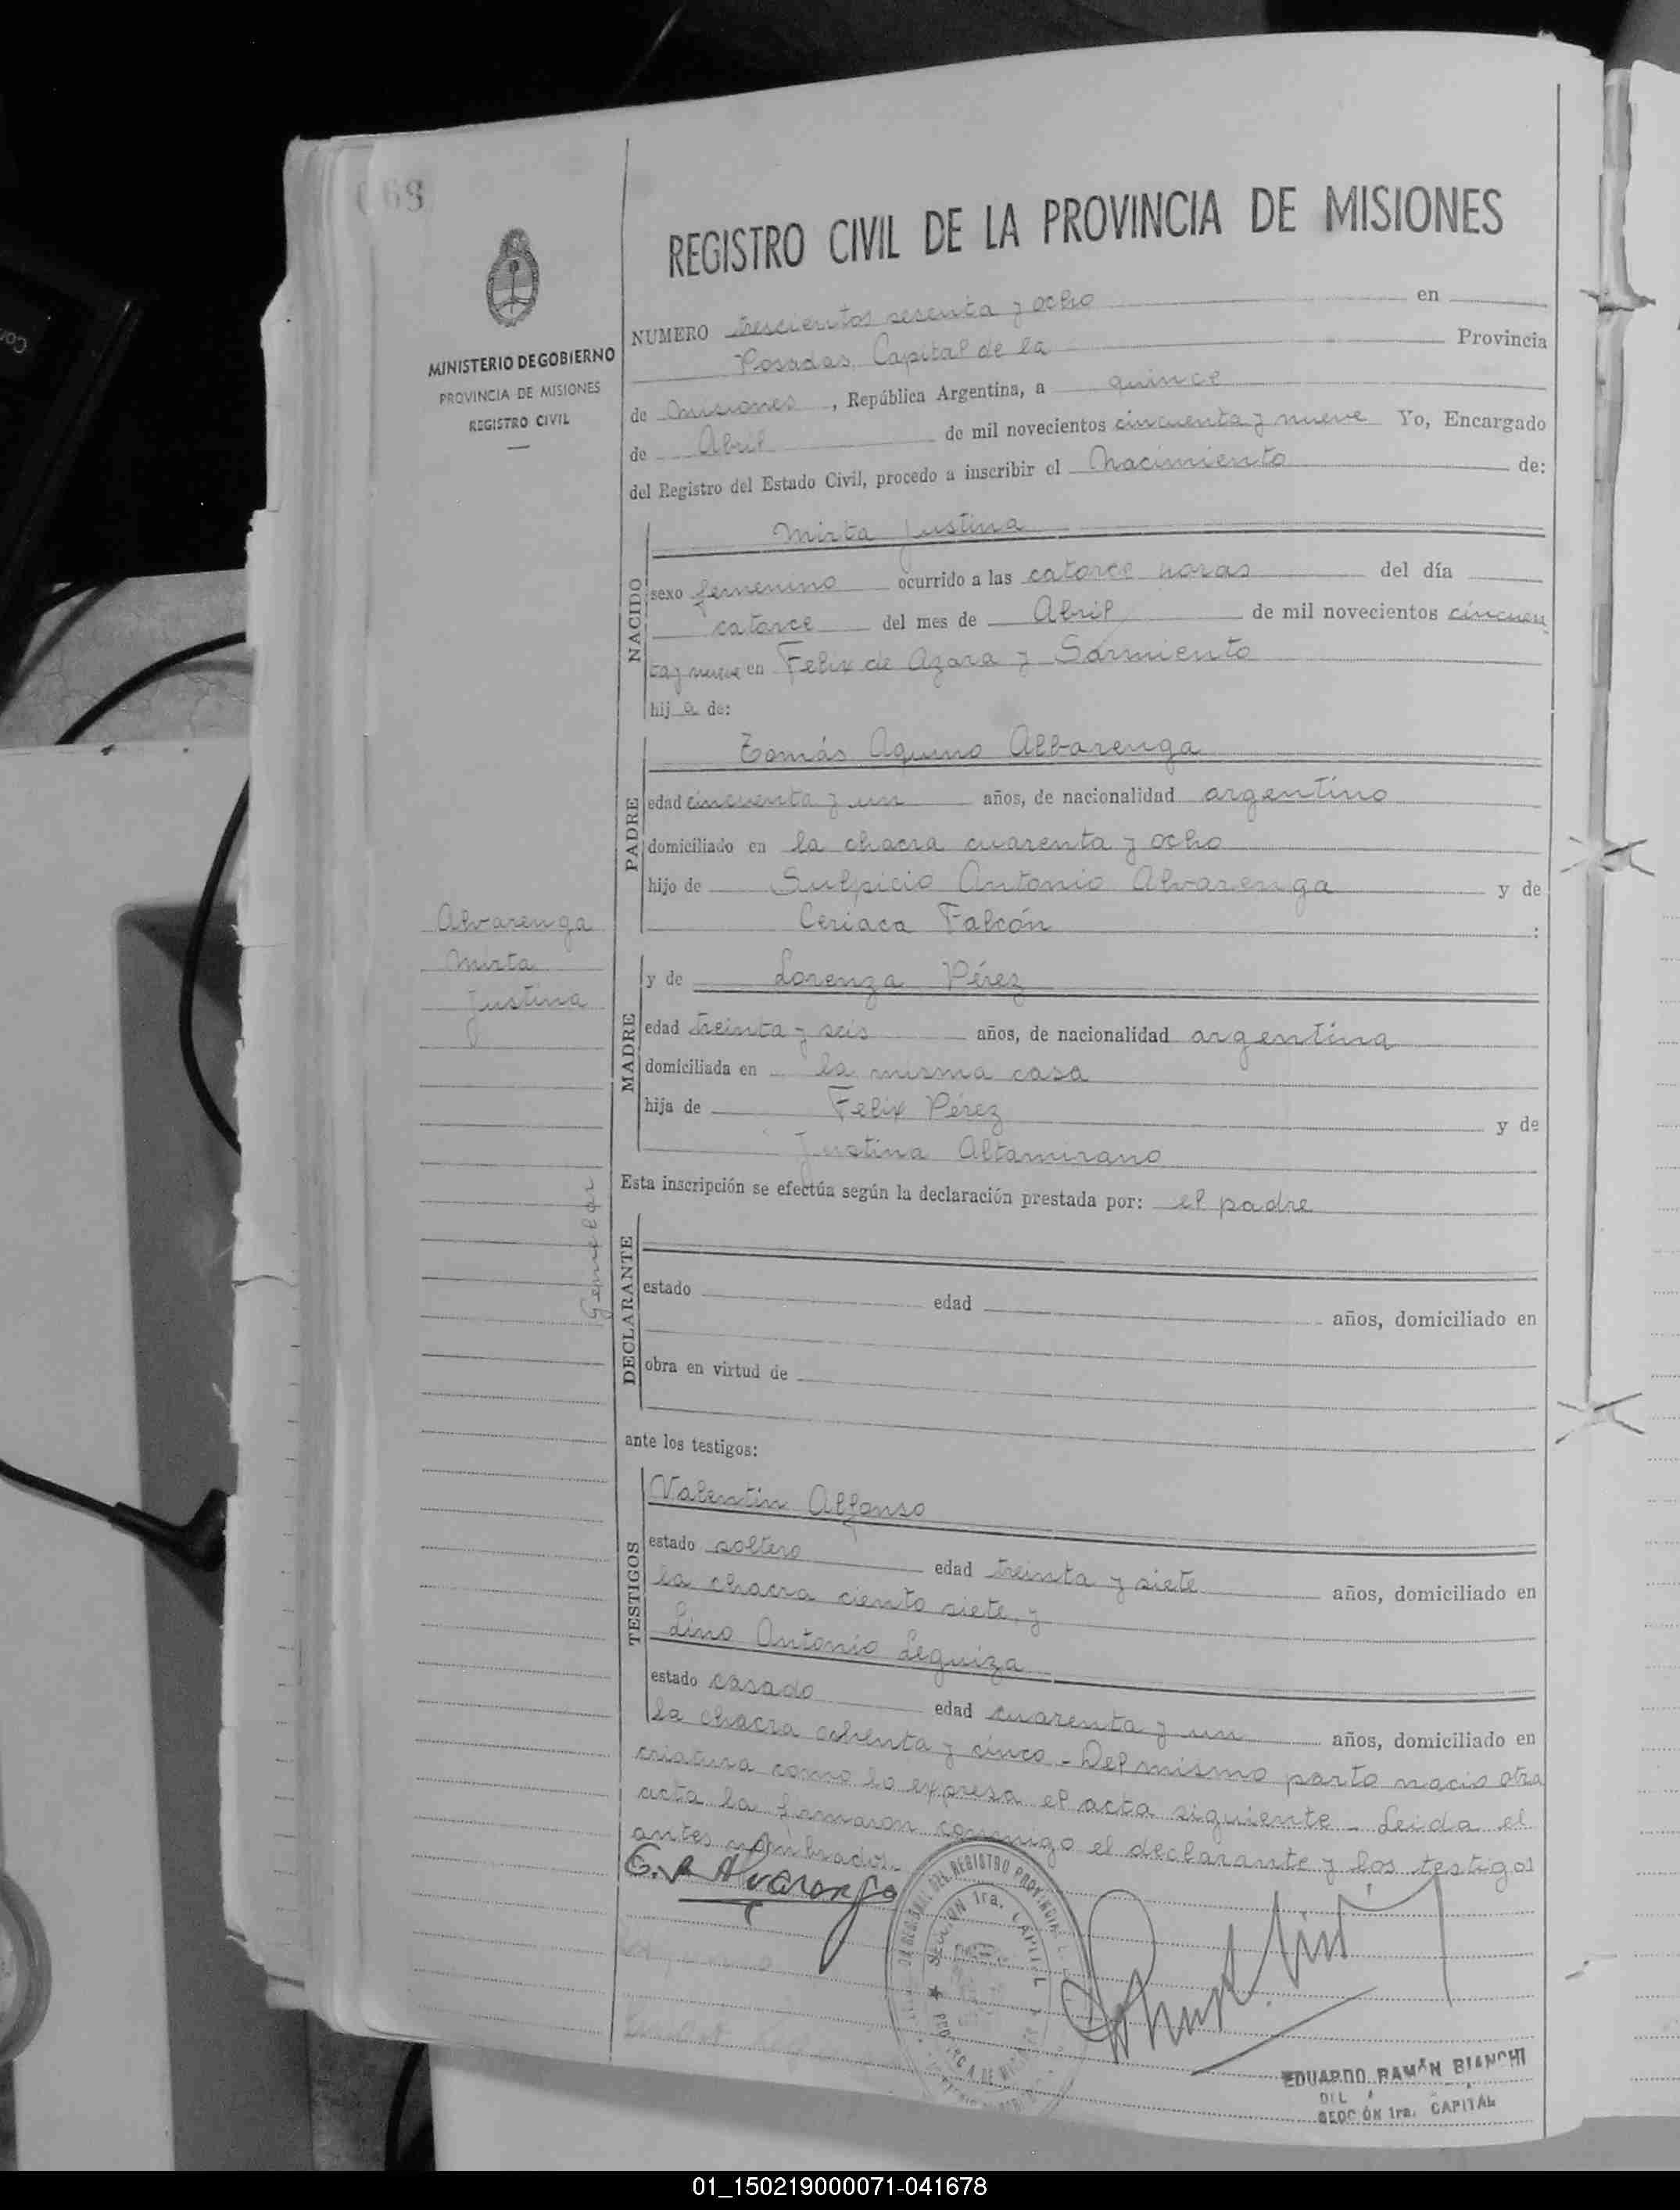 068
REGISTRO CIVIL DE LA PROVINCIA DE MISIONES
MINISTERIO DE GOBIERNO
PROVINCIA DE MISIONES
REGISTRO CIVIL
NUMERO trescientos sesenta y ocho en
Posadas Capital de la Provincia
de Misiones, República Argentina, a quince
de Abril de mil novecientos cincuenta y nueve Yo, Encargado
del Registro del Estado Civil, procedo a inscribir el Nacimiento de:
NACIDO
Mirta Justina
sexo femenino ocurrido a las catorce horas del día
catorce del mes de Abril de mil novecientos cincuen
ta y nueve en Felix de Azara y Sarmiento
hij a de:
PADRE
Tomás Aquino Albarenga
edad cincuenta y un años, de nacionalidad argentino
domiciliado en la chacra cuarenta y ocho
hijo de Sulpicio Antonio Alvarenga y de
Ceriaca Falcón :
Alvarenga
Mirta
Justina
MADRE
y de Lorenza Pérez
edad treinta y seis años, de nacionalidad argentina
domiciliada en la misma casa
hija de Felix Pérez y de
Justina Altamirano
Esta inscripción se efectúa según la declaración prestada por: el padre
DECLARANTE
estado edad años, domiciliado en
obra en virtud de
ante los testigos:
TESTIGOS
Valentin Alfonso
estado soltero edad treinta y siete años, domiciliado en
la chacra ciento siete, y
Lino Antonio Leguiza
estado casado edad cuarenta y un años, domiciliado en
la chacra ochenta y cinco - Del mismo parto nacio otra
criatura como lo expresa el acta siguiente - Leida el
acta la firmaron conmigo el declarante y los testigos
antes nombrados.
SECCION 1ra. CAPITAL
EDUARDO RAMÓN BIANCHI
SECCION 1ra. CAPITAL
01_150219000071-041678